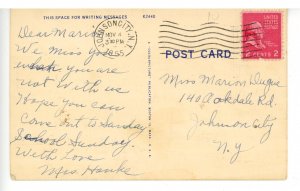 THIS SPACE FOR WRITING MESSAGES
Dear Marion
We Miss you
when you are
not with us
Hope you can
Come out to Sunday
School Sunday.
With Love
Mrs. Hawks
JOHNSON CITY, N.Y.
NOV 4
PM
1955
POST CARD
2 CENTS 2
Miss Marion
140 Oakdale Rd.
Johnson City
N. Y